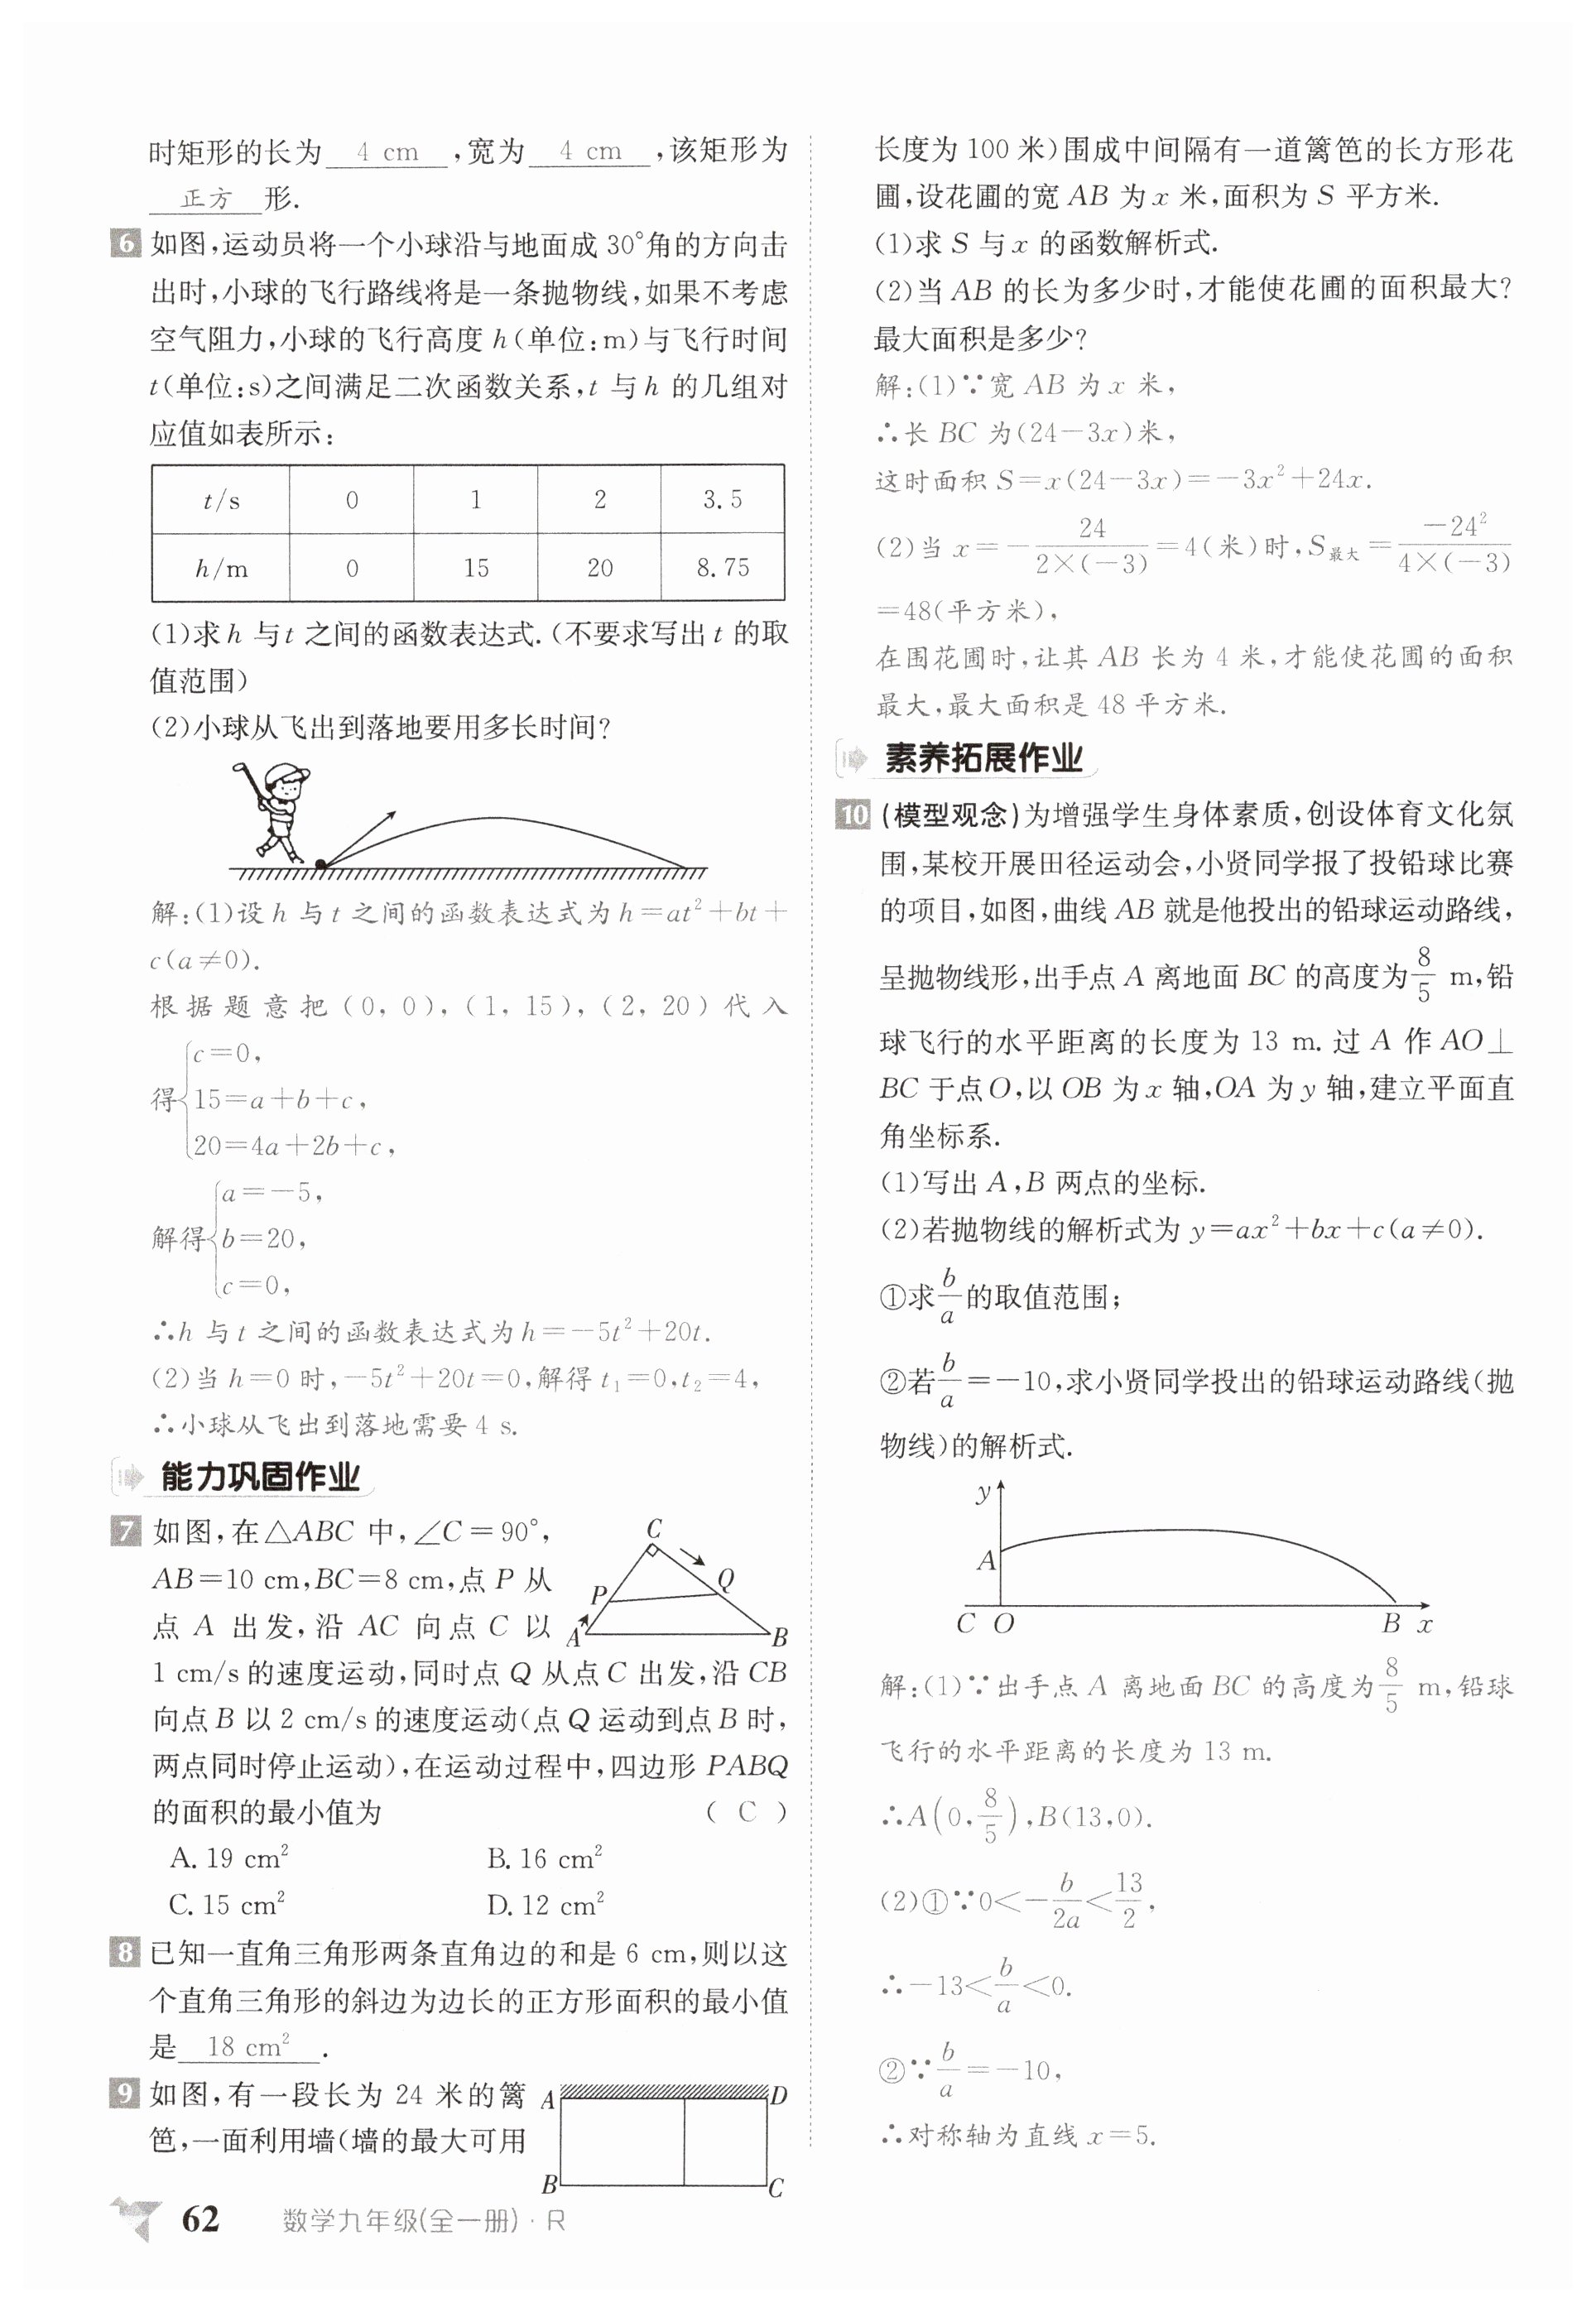 时矩形的长为 4 cm ,宽为 4 cm ,该矩形为
正方 形.
6 如图,运动员将一个小球沿与地面成 30°角的方向击
出时,小球的飞行路线将是一条抛物线,如果不考虑
空气阻力,小球的飞行高度 h(单位:m)与飞行时间
t(单位:s)之间满足二次函数关系,t 与 h 的几组对
应值如表所示:
t/s 0 1 2 3.5
h/m 0 15 20 8.75
(1)求 h 与 t 之间的函数表达式.(不要求写出 t 的取
值范围)
(2)小球从飞出到落地要用多长时间?
解:(1)设 h 与 t 之间的函数表达式为 h=at²+bt+
c(a≠0).
根据题意把(0,0),(1,15),(2,20)代入
得{c=0,
15=a+b+c,
20=4a+2b+c,
解得{a=-5,
b=20,
c=0,
∴h 与 t 之间的函数表达式为 h=-5t²+20t.
(2)当 h=0 时,-5t²+20t=0,解得 t₁=0,t₂=4,
∴小球从飞出到落地需要 4 s.
能力巩固作业
7 如图,在△ABC 中,∠C=90°,
AB=10 cm,BC=8 cm,点 P 从
点 A 出发,沿 AC 向点 C 以
C
P
Q
A
B
1 cm/s 的速度运动,同时点 Q 从点 C 出发,沿 CB
向点 B 以 2 cm/s 的速度运动(点 Q 运动到点 B 时,
两点同时停止运动),在运动过程中,四边形 PABQ
的面积的最小值为 ( C )
A. 19 cm² B. 16 cm²
C. 15 cm² D. 12 cm²
8 已知一直角三角形两条直角边的和是 6 cm,则以这
个直角三角形的斜边为边长的正方形面积的最小值
是 18 cm² .
9 如图,有一段长为 24 米的篱
笆,一面利用墙(墙的最大可用
A D
B C
62 数学九年级(全一册)·R
长度为 100 米)围成中间隔有一道篱笆的长方形花
圃,设花圃的宽 AB 为 x 米,面积为 S 平方米.
(1)求 S 与 x 的函数解析式.
(2)当 AB 的长为多少时,才能使花圃的面积最大?
最大面积是多少?
解:(1)∵宽 AB 为 x 米,
∴长 BC 为(24-3x)米,
这时面积 S=x(24-3x)=-3x²+24x.
(2)当 x=-24/(2×(-3))=4(米)时,S最大=-24²/(4×(-3))
=48(平方米),
在围花圃时,让其 AB 长为 4 米,才能使花圃的面积
最大,最大面积是 48 平方米.
素养拓展作业
10 (模型观念)为增强学生身体素质,创设体育文化氛
围,某校开展田径运动会,小贤同学报了投铅球比赛
的项目,如图,曲线 AB 就是他投出的铅球运动路线,
呈抛物线形,出手点 A 离地面 BC 的高度为8/5 m,铅
球飞行的水平距离的长度为 13 m. 过 A 作 AO⊥
BC 于点 O,以 OB 为 x 轴,OA 为 y 轴,建立平面直
角坐标系.
(1)写出 A,B 两点的坐标.
(2)若抛物线的解析式为 y=ax²+bx+c(a≠0).
①求b/a的取值范围;
②若b/a=-10,求小贤同学投出的铅球运动路线(抛
物线)的解析式.
y
A
C O B x
解:(1)∵出手点 A 离地面 BC 的高度为8/5 m,铅球
飞行的水平距离的长度为 13 m.
∴A(0,8/5),B(13,0).
(2)①∵0<-b/2a<13/2,
∴-13<b/a<0.
②∵b/a=-10,
∴对称轴为直线 x=5.